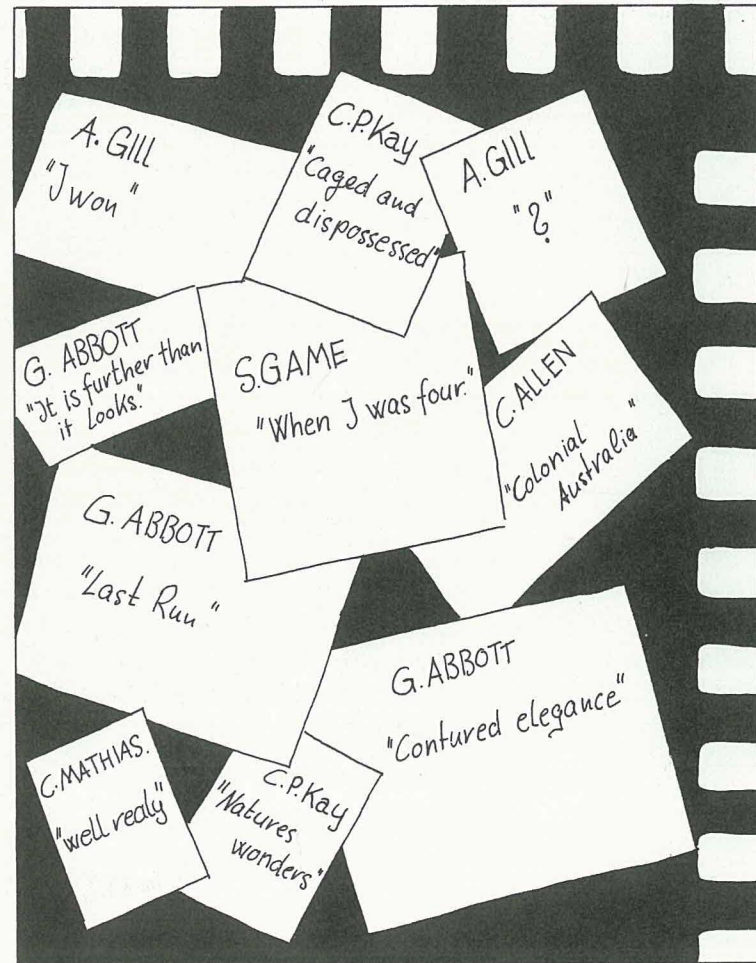 A. GILL
"I won"
C.P.Kay
"Caged and
dispossessed"
A. GILL
"?"
G. ABBOTT
"It is further than
it Looks."
S.GAME
"When I was four."
C. ALLEN
"Colonial
Australia"
G. ABBOTT
"Last Run"
G. ABBOTT
"Contured elegance"
C. MATHIAS.
"well realy"
C.P.Kay
"Natures
wonders"